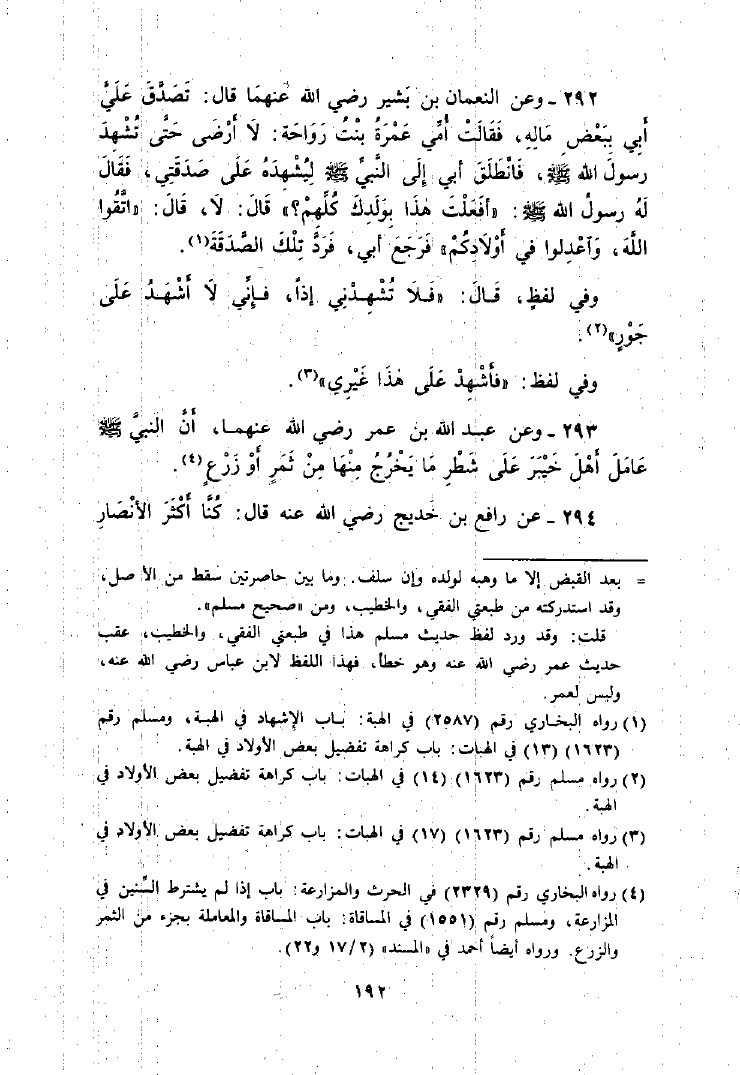 ٢٩٢ ـ وعن النعمان بن بَشير رضي الله عنهمَا قال: تَصَدَّقَ عَلَيَّ
أَبي بِبَعْضِ مَالِهِ، فَقَالَتْ أُمِّي عَمْرَةُ بِنْتُ رَوَاحَة: لَا أَرْضَى حَتَّى تُشْهِدَ
رسولَ الله ﷺ، فَانْطَلَقَ أبي إِلَى النَّبيِّ ﷺ لِيُشْهِدَهُ عَلَى صَدَقَتِي، فَقَالَ
لَهُ رسولُ الله ﷺ: «أَفَعَلْتَ هٰذَا بِوَلَدِكَ كُلِّهِمْ؟» قَالَ: لَا، قَالَ: «اتَّقُوا
اللَّهَ، وَاعْدِلوا في أَوْلَادِكُمْ» فَرَجَعَ أبي، فَرَدَّ تِلْكَ الصَّدَقَةَ(١).
وفي لفظٍ، قَـالَ: «فَـلَا تُشْهِـدْنِي إذاً، فَـإِنِّي لَا أَشْهَـدُ عَلَى
جَوْرٍ»(٢).
وفي لفظ: «فأَشْهِدْ عَلَى هٰذَا غَيْرِي»(٣).
٢٩٣ ـ وعن عبـد الله بن عمر رضي الله عنهمـا، أَنَّ النبيَّ ﷺ
عَامَلَ أَهْلَ خَيْبَرَ عَلَى شَطْرِ مَا يَخْرُجُ مِنْهَا مِنْ ثَمَرٍ أَوْ زَرْعٍ(٤).
٢٩٤ ـ عن رافع بن خديج رضي الله عنه قال: كُنَّا أَكْثَرَ الأَنْصَارِ
= بعد القبض إلا ما وهبه لولده وإن سلف. وما بين حاصرتين سقط من الأصل،
وقد استدركته من طبعتي الفقي، والخطيب، ومن «صحيح مسلم».
قلت: وقد ورد لفظ حديث مسلم هذا في طبعتي الفقي، والخطيب، عقب
حديث عمر رضي الله عنه وهو خطأ، فهذا اللفظ لابن عباس رضي الله عنه،
وليس لعمر.
(١) رواه البخـاري رقم (٢٥٨٧) في الهبة: بـاب الإشهاد في الهبـة، ومسلم رقم
(١٦٢٣) (١٣) في الهبات: باب كراهة تفضيل بعض الأولاد في الهبة.
(٢) رواه مسلم رقم (١٦٢٣) (١٤) في الهبات: باب كراهة تفضيل بعض الأولاد في
الهبة.
(٣) رواه مسلم رقم (١٦٢٣) (١٧) في الهبات: باب كراهة تفضيل بعض الأولاد في
الهبة.
(٤) رواه البخاري رقم (٢٣٢٩) في الحرث والمزارعة: باب إذا لم يشترط السِّنين في
المزارعة، ومسلم رقم (١٥٥١) في المساقاة: باب المساقاة والمعاملة بجزء من الثمر
والزرع. ورواه أيضاً أحمد في «المسند» (١٧/٢ و٢٢).
١٩٢